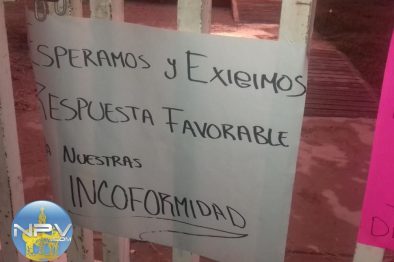 ESPERAMOS Y EXIGIMOS
RESPUESTA FAVORABLE
A NUESTRAS
INCOFORMIDAD
NPV
.COM